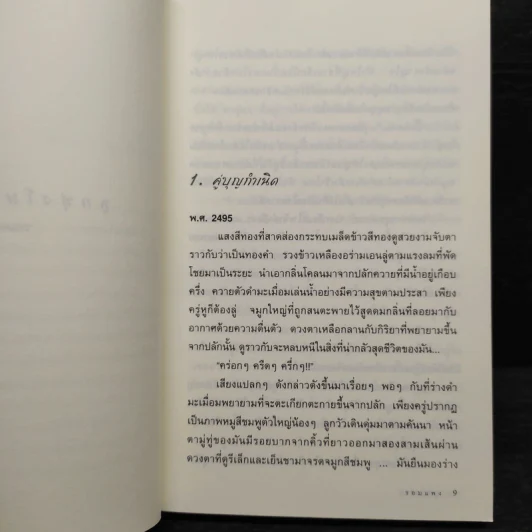 1. คู่บุญกำเนิด
พ.ศ. 2495
แสงสีทองที่สาดส่องกระทบเมล็ดข้าวสีทองดูสวยงามจับตา
ราวกับว่าเป็นทองคำ รวงข้าวเหลืองอร่ามเอนลู่ตามแรงลมที่พัด
โชยมาเป็นระยะ นำเอากลิ่นโคลนมาจากปลักควายที่มีน้ำอยู่เกือบ
ครึ่ง ควายตัวดำมะเมื่อมเล่นน้ำอย่างมีความสุขตามประสา เพียง
ครู่หูก็ต้องลู่ จมูกใหญ่ที่ถูกสนตะพายไว้สูดดมกลิ่นที่ลอยมากับ
อากาศด้วยความตื่นตัว ตวงตาเหลือกลานกับกิริยาที่พยายามขึ้น
จากปลักนั้น ดูราวกับจะหลบหนีในสิ่งที่น่ากลัวสุดชีวิตของมัน...
"คร่อกๆ ครืดๆ ครึ่กๆ!!"
เสียงแปลกๆ ดังกล่าวดังขึ้นมาเรื่อยๆ พอๆ กับที่ร่างดำ
มะเมื่อมพยายามที่จะตะเกียกตะกายขึ้นจากปลัก เพียงครู่ปรากฏ
เป็นภาพหมูสีชมพูตัวใหญ่น้องๆ ลูกวัวเดินดุ่มมาตามคันนา หน้า
ตามู่ทู่ของมันมีรอยบากจากคิ้วที่ยาวออกมาสองสามเส้นผ่าน
ดวงตาที่ดูรีเล็กและเย็นชามาจรดจมูกสีชมพู ... มันยืนมองร่าง
9